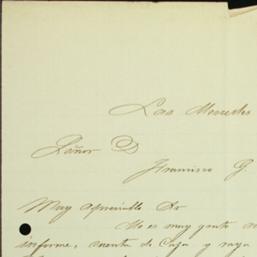 Las Mercedes
Señor D
Francisco G.
Muy apreciable Sr
No es muy grato
informe, cuenta de Caja y raya